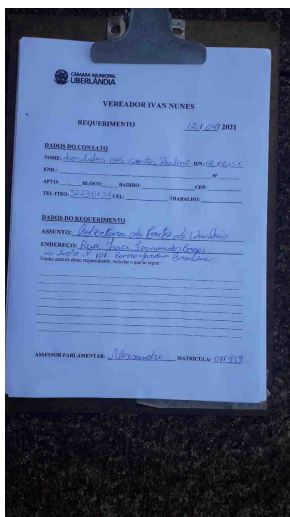 CÂMARA MUNICIPAL
UBERLÂNDIA
VEREADOR IVAN NUNES
REQUERIMENTO 12/04/2021
DADOS DO CONTATO
NOME: dos Santos D/N:
END.: Nº
APTO: BLOCO: BAIRRO: CEP:
TEL FIXO: CEL: TRABALHO:
DADOS DO REQUERIMENTO
ASSUNTO: Cobertura do Ponto de Ônibus
ENDEREÇO: Rua Fernandes
ao lado Nº 101 Bairro Jardim Brasília
Venho através deste requerimento, solicitar o que se segue:
ASSESSOR PARLAMENTAR: Alessandro MATRICULA: 011939